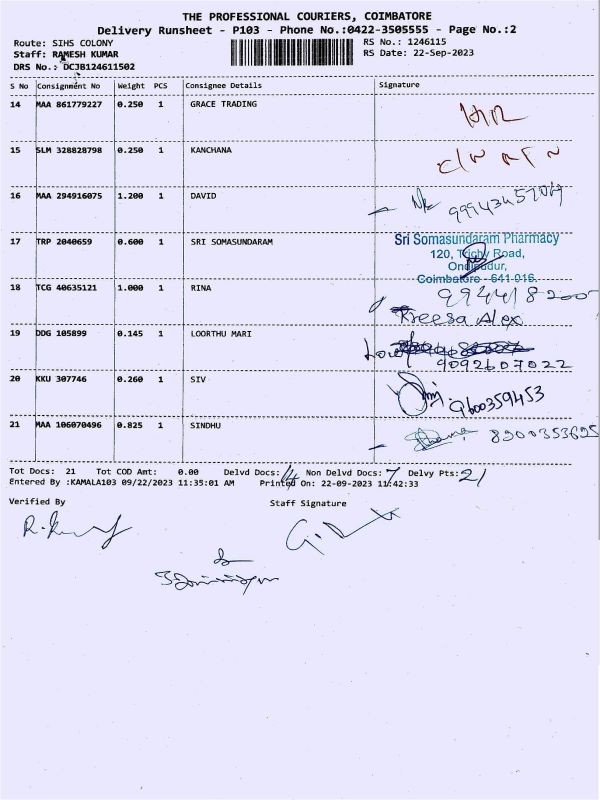 THE PROFESSIONAL COURIERS, COIMBATORE
Delivery Runsheet - P103 - Phone No.:0422-3505555 - Page No.:2
Route: SIHS COLONY
RS No.: 1246115
Staff: RAMESH KUMAR
RS Date: 22-Sep-2023
DRS No.: DCJB124611502
S No Consignment No Weight PCS Consignee Details Signature
14 MAA 861779227 0.250 1 GRACE TRADING
15 SLM 328828798 0.250 1 KANCHANA
16 MAA 294916075 1.200 1 DAVID
17 TRP 2040659 0.600 1 SRI SOMASUNDARAM
Sri Somasundaram Pharmacy
120, Trichy Road,
Ondipudur,
Coimbatore - 641 016.
18 TCG 40635121 1.000 1 RINA
Alex
19 DDG 105899 0.145 1 LOORTHU MARI
9092607022
20 KKU 307746 0.260 1 SIV
9600359453
21 MAA 106070496 0.825 1 SINDHU
8900353695
Tot Docs: 21 Tot COD Amt: 0.00 Delvd Docs: 14 Non Delvd Docs: 7 Delvy Pts: 21
Entered By :KAMALA103 09/22/2023 11:35:01 AM Printed On: 22-09-2023 11:42:33
Verified By Staff Signature